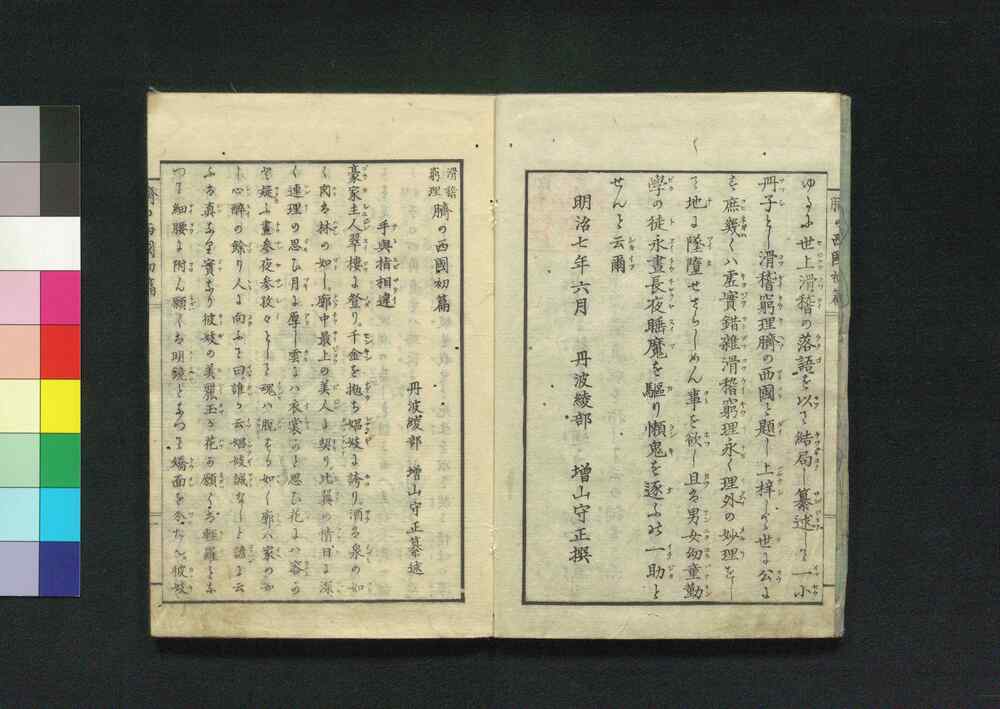 ゆゑに世上滑稽の落語を以て結局し纂述して一小
丹子とし滑稽窮理臍の西國と題し上梓して世に公に
す庶幾くハ虚實錯雜滑稽窮理永く理外の妙理をし
て地に墜墮せざらしめん事を欲し且る男女幼童勤
學の徒永晝長夜睡魔を驅り懶鬼を逐ふの一助と
せんと云爾
明治七年六月 丹波綾部 增山守正撰
臍の西國初篇
滑稽窮理 臍の西國初篇
丹波綾部 增山守正纂述
手與指相違
豪家主人翠樓に登り千金を抛ち娼妓に誇り酒ハ泉の如
く肉ハ林の如し廓中最上の美人に契り比翼の情日に深
く連理の思ひ月に厚し雲にハ衣裳かと思ひ花にハ容か
と疑ふ晝參夜參孜々として魂ハ脫るも如く廓ハ家の如
し心醉の餘り人に向ふて曰誰か云娼妓誠なしと諺に云
ふハ真に實あり彼妓の美麗玉か花か願くハ輕羅と
つて細腰に附ん願くハ明鏡となつて嬌面を分たん彼妓
臍の西國初篇